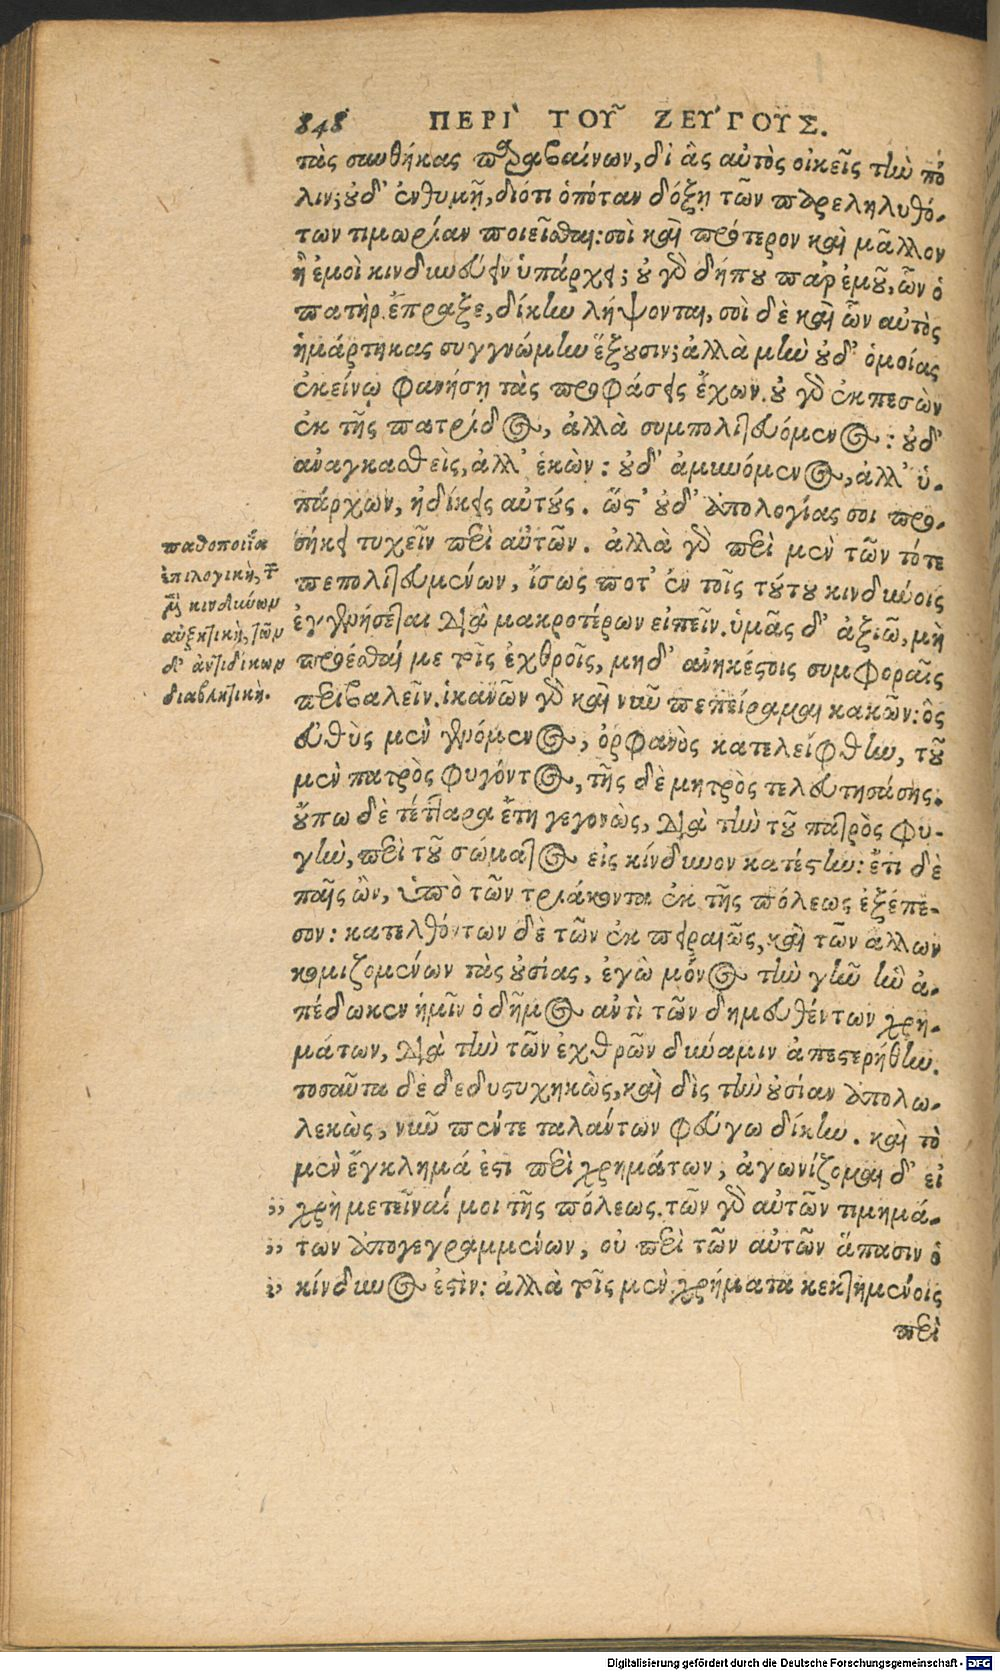 848 ΠΕΡῚ ΤΟΥ͂ ΖΕΎΓΟΥΣ.
τὰς συνθήκας παραβαίνων, δι' ἃς αὐτὸς οἰκεῖς τὴν πό
λιν; οὐδ' ἐνθυμῇ, διότι ὁπόταν δόξῃ τῶν παρεληλυθό-
των τιμωρίαν ποιεῖσθαι: σοὶ καὶ πρότερον καὶ μᾶλλον
ἢ ἐμοὶ κινδυνεύειν ὑπάρχει; οὐ γὰρ δήπου παρ' ἐμοῦ, ὧν ὁ
πατὴρ ἔπραξε, δίκην λήψονται, σοὶ δὲ καὶ ὧν αὐτὸς
ἡμάρτηκας συγγνώμην ἕξουσιν; ἀλλὰ μὴν οὐδ' ὁμοίας
ἐκείνῳ φανήσῃ τὰς προφάσεις ἔχων. οὐ γὰρ ἐκπεσὼν
ἐκ τῆς πατρίδος, ἀλλὰ συμπολιτευόμενος: οὐδ'
ἀναγκασθεὶς, ἀλλ' ἑκών: οὐδ' ἀμυνόμενος, ἀλλ' ὑ-
πάρχων, ἠδίκεις αὐτούς. ὥστ' οὐδ' ἀπολογίας σοι προ-
σήκει τυχεῖν περὶ αὐτῶν. ἀλλὰ γὰρ περὶ μὲν τῶν τότε
πεπολιτευμένων, ἴσως ποτ' ἐν τοῖς τούτου κινδύνοις
ἐγχωρήσεται διὰ μακροτέρων εἰπεῖν. ὑμᾶς δ' ἀξιῶ, μὴ
προέσθαί με τοῖς ἐχθροῖς, μηδ' ἀνηκέστοις συμφοραῖς
περιβαλεῖν. ἱκανῶν γὰρ καὶ νῦν πεπείραμαι κακῶν: ὃς
εὐθὺς μὲν γενόμενος, ὀρφανὸς κατελείφθην, τοῦ
μὲν πατρὸς φυγόντος, τῆς δὲ μητρὸς τελευτησάσης.
οὔπω δὲ τέτταρα ἔτη γεγονὼς, διὰ τὴν τοῦ πατρὸς φυ-
γὴν, περὶ τοῦ σώματος εἰς κίνδυνον κατέστην: ἔτι δὲ
παῖς ὢν, ὑπὸ τῶν τριάκοντα ἐκ τῆς πόλεως ἐξέπε-
σον: κατελθόντων δὲ τῶν ἐκ πειραιῶς, καὶ τῶν ἄλλων
κομιζομένων τὰς οὐσίας, ἐγὼ μόνος τὴν γῆν ἣν ἀ-
πέδωκεν ἡμῖν ὁ δῆμος ἀντὶ τῶν δημευθέντων χρη-
μάτων, διὰ τὴν τῶν ἐχθρῶν δύναμιν ἀπεστερήθην.
τοσαῦτα δὲ δεδυστυχηκὼς, καὶ δὶς τὴν οὐσίαν ἀπολω-
λεκὼς, νῦν πέντε ταλάντων φεύγω δίκην. καὶ τὸ
μὲν ἔγκλημά ἐστι περὶ χρημάτων, ἀγωνίζομαι δ' εἰ
,, χρὴ μετεῖναί μοι τῆς πόλεως. τῶν γὰρ αὐτῶν τιμημά-
,, των ἀπογεγραμμένων, οὐ περὶ τῶν αὐτῶν ἅπασιν ὁ
,, κίνδυνος ἐστὶν: ἀλλὰ τοῖς μὲν χρήματα κεκτημένοις
περὶ
παθοποιΐα
ἐπιλογικὴ, τ
μὲν κινδύνων
αὐξητικὴ, τῶν
δ' ἀντιδίκων
διαβλητικὴ.
Digitalisierung gefördert durch die Deutsche Forschungsgemeinschaft - DFG